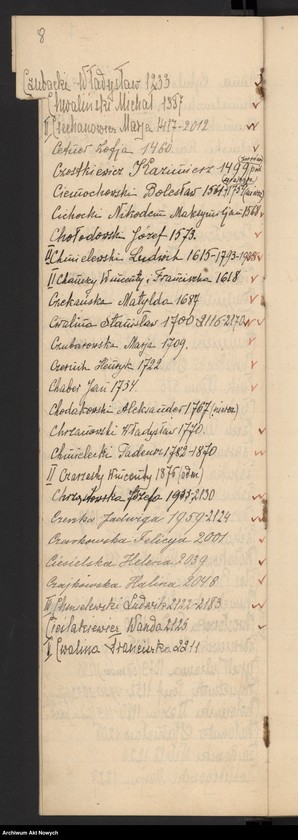 8
Czubacki Władysław 1233
Chwaliński Michał 1357
II Ciechanowicz Marja 1417-2012
Zofja 1460
Czostkiewicz Kazimierz 1499
Ciemochowski Bolesław
Cichocki Nikodem Maksymiljan-1568
Chołodowski Józef 1573.
II Chmielewski Ludwik 1615-1743-1908
II Chańscy Wincenty i Franciszka 1618
Czekańska Matylda 1687
Cwalina Stanisław 1700-2116-2170
Czubarowska Marja 1709.
Henryk 1722
Chaber Jan 1734
Chodakowski Aleksander 1767
Chrzanowski Władysław 1770.
Chmielecki Tadeusz 1782-1870
II Czarzasty Wincenty 1876 (adm)
Józefa 1993-2130
Czeska Jadwiga 1959-2124
Czarkowska Felicja 2001
Ciesielska Helena 2039
Czajkowska Halina 2048
III Chmielewski Ludwik 2122-2183
Wanda 2125
II Cwalina Franciszka 2211
Archiwum Akt Nowych